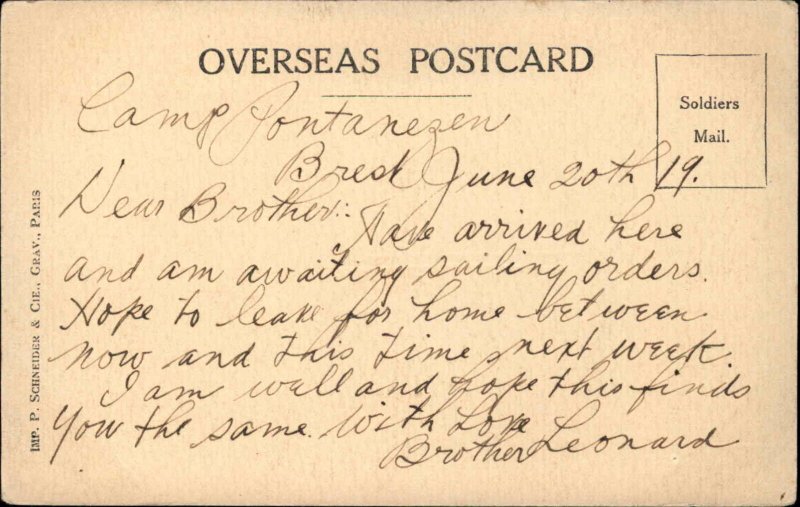 OVERSEAS POSTCARD
Soldiers
Mail.
Camp Pontanezen
Brest June 20th 19.
Dear Brother:
Have arrived here
and am awaiting sailing orders.
Hope to leave for home between
now and this time next week.
I am well and hope this finds
you the same. With Love
Brother Leonard
IMP. P. SCHNEIDER & CIE., GRAV., PARIS